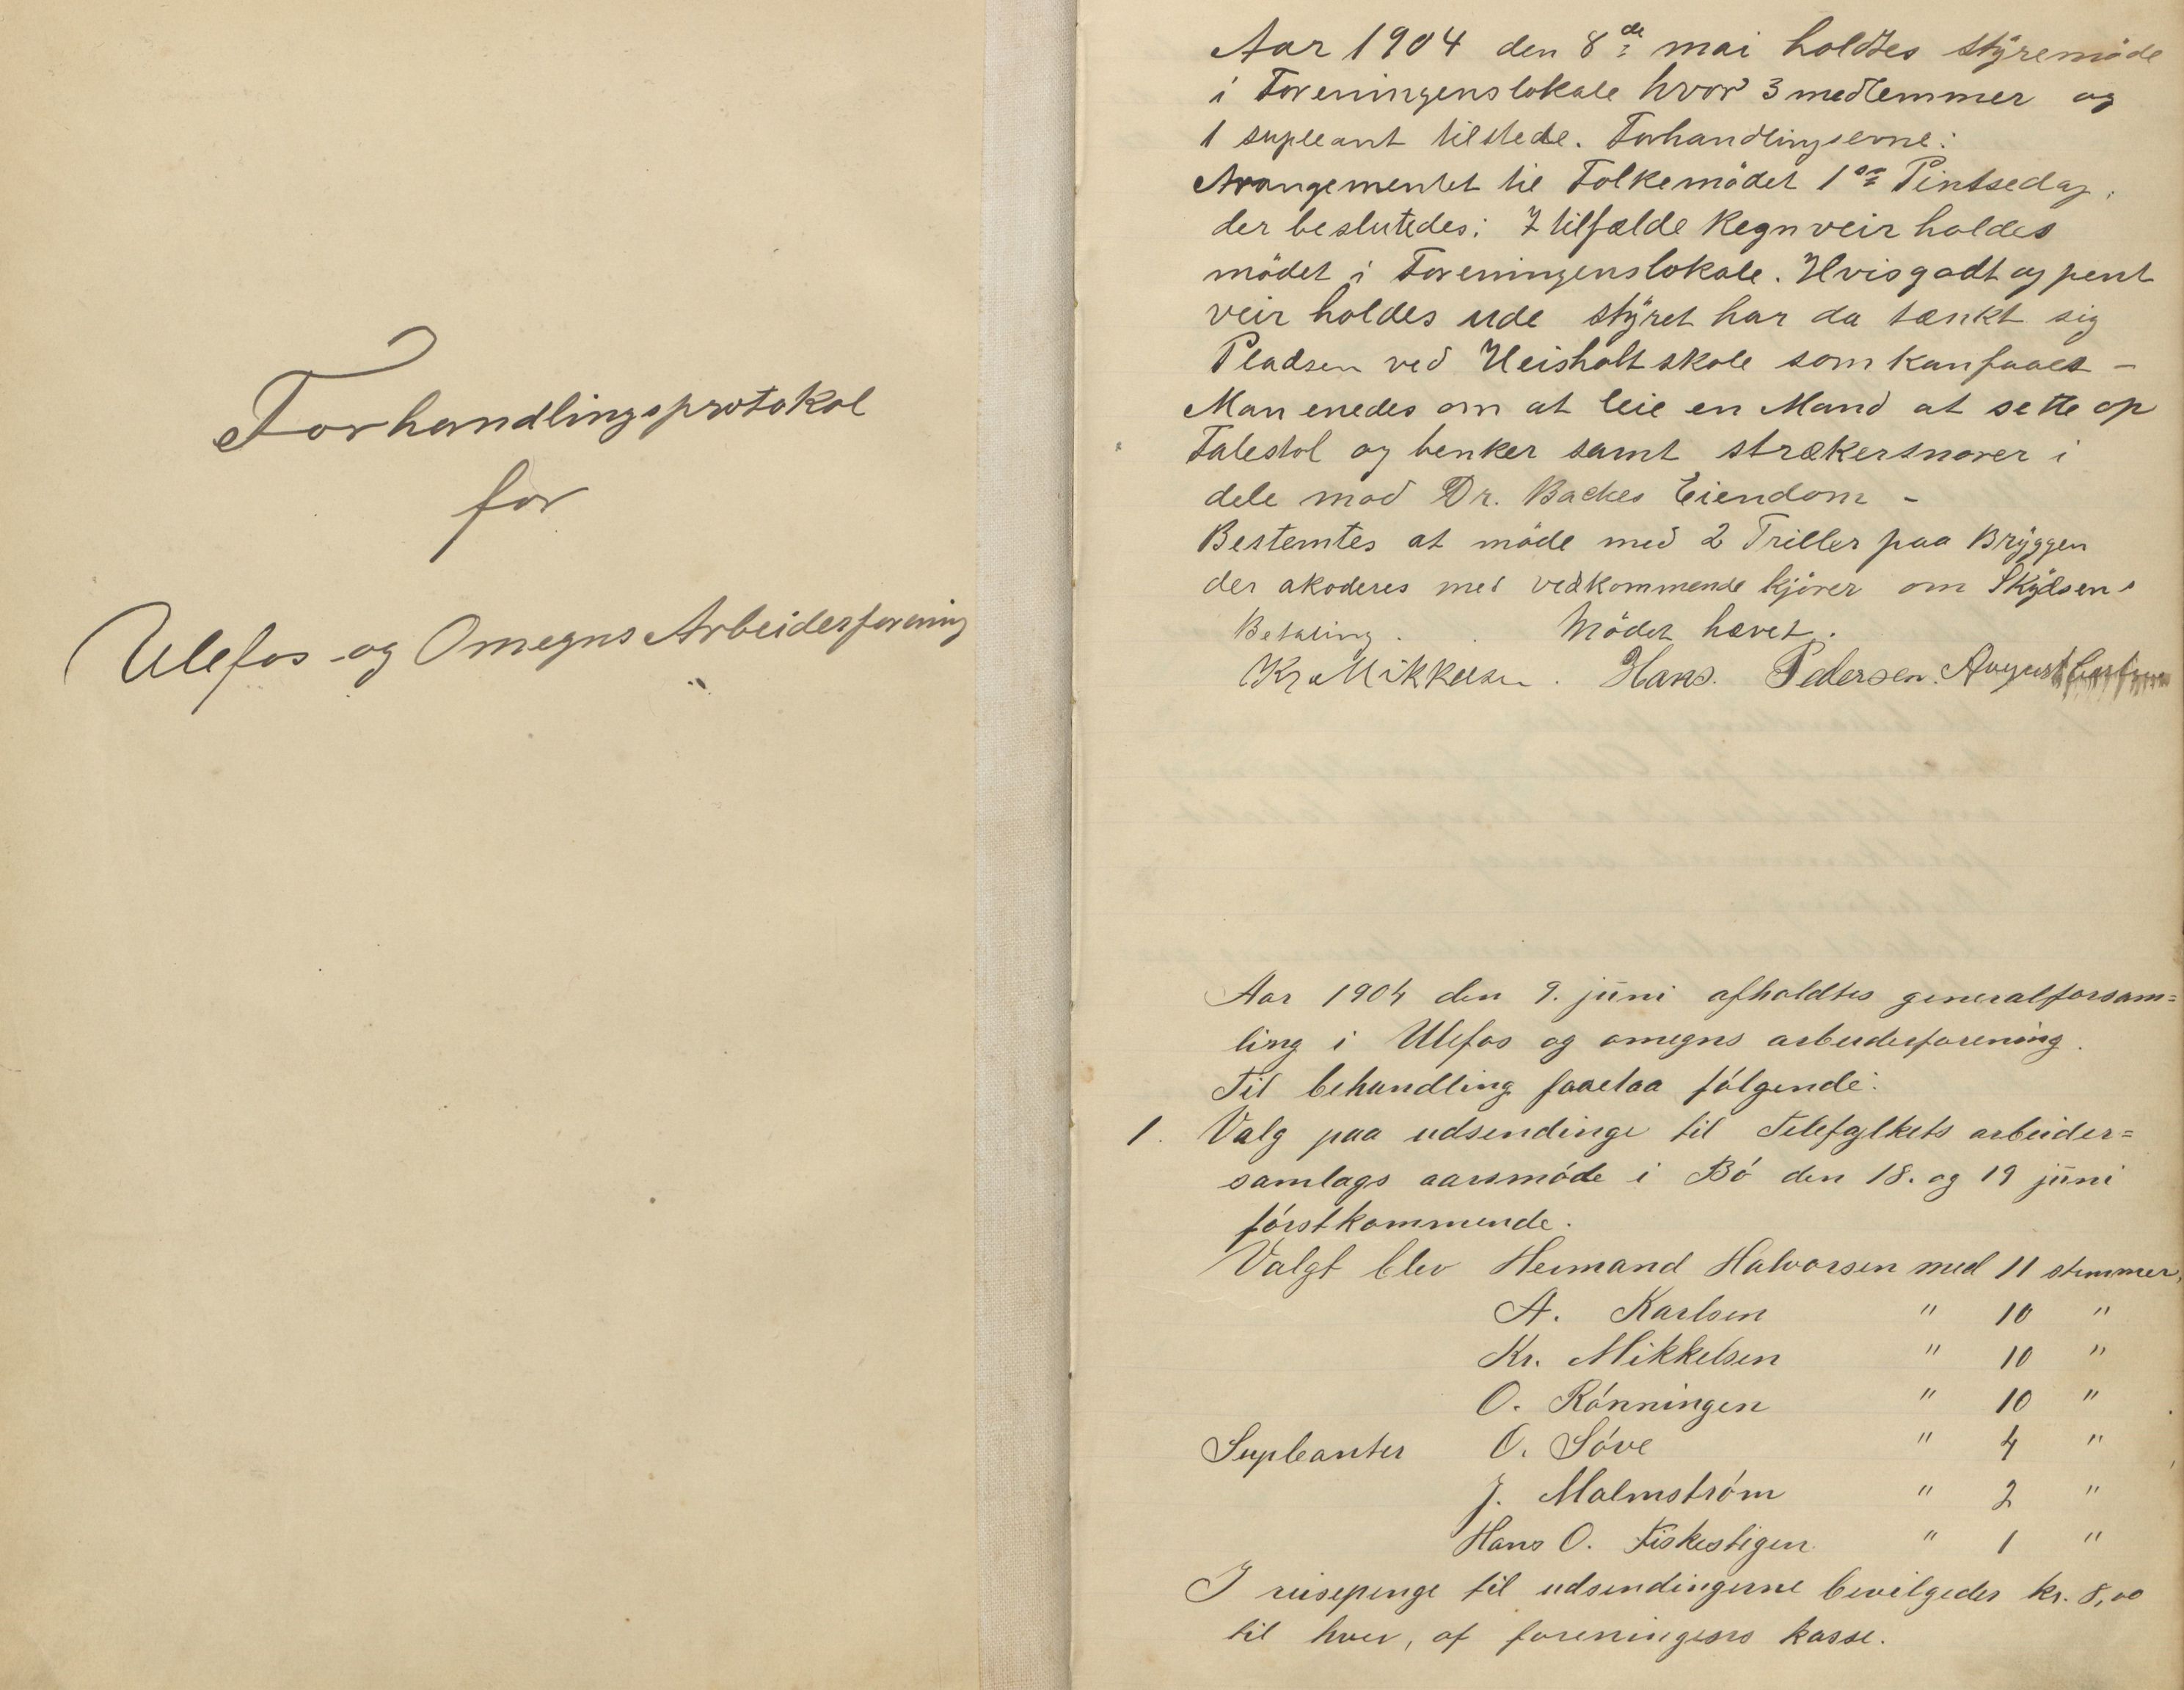 Forhandlingsprotokol
for
Ulefos og Omegns Arbeiderforening
Aar 1904 den 8de mai holdtes styremöde
i Foreningenslokale hvor 3 medlemmer og
1 supleant tilstede. Forhandlingserne:
Arangementet til Folkemödet 1ste Pintsedag,
der beslutedes: I tilfælde Regnveir holdes
mödet i Foreningenslokale. Hvis godt og pent
veir holdes ude styret har da tænkt sig
Pladsen ved Heisholt skole som kan faaes –
Man enedes om at leie en Mand at sette op
Talestol og benker samt strækersnorer i
dele mod Dr. Backes Eiendom –
Bestemtes at möde med 2 Triller paa Bryggen
der akoderes med vedkommende kjörer om Skydsens
Betaling. Mödet hævet.
Kr. Mikkelsen. Hans. Pedersen. August
Aar 1904 den 9. juni afholdtes generalforsam=
ling i Ulefos og omegns arbeiderforening.
Til behandling forelaa fölgende:
1. Valg paa udsendinge til Telefylkets arbeider=
samlags aarsmöde i Bö den 18. og 19 juni
förstkommende.
Valgt blev Hermand Halvorsen med 11 stemmer,
A. Karlsen " 10 "
Kr. Mikkelsen " 10 "
O. Rönningen " 10 "
Supleanter O. Söve " 4 "
J. Malmström " 2 "
Hans O. Fiskestigen " 1 "
I reisepenge til udsendingerne bevilgedes kr. 8,00
til hver, af foreningens kasse.